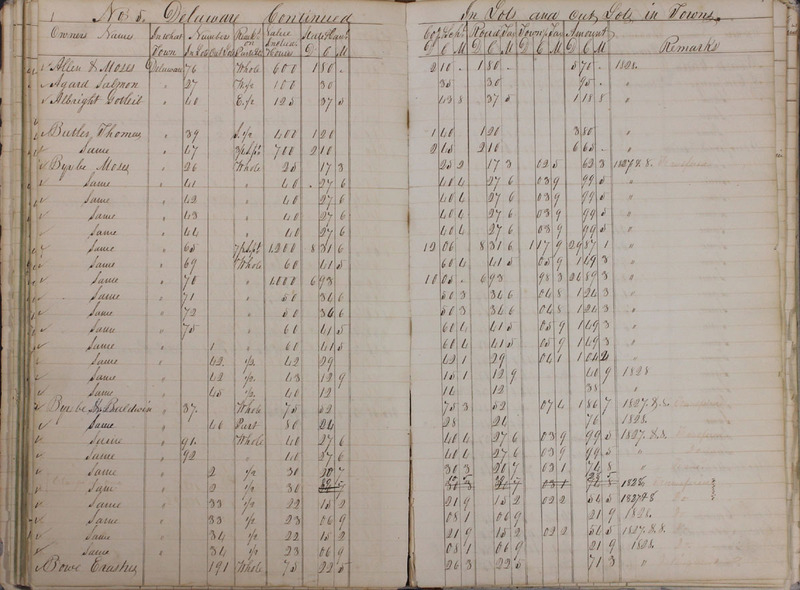 No. 5. Delaware Continued In Lots and Out Lots in Towns.
Owners Name In what Town Number In Lot Out Lot Value Houses D C M Road Tax Town Tax Amount D C M Remarks
Allen & Moses Delaware 76 Whole 600 1 80 2 10 1 80 5 70 1828
Agard Salmon " 27 100 30 35 30 95 "
Albright Gotleib " 40 E. 1/2 125 37 5 43 8 37 5 1 18 8 "
Butler, Thomas " 39 S. 1/2 400 1 20 1 40 1 20 3 80 "
Same " 47 700 2 10 2 45 2 10 6 65 "
Byxbe Moses " 26 Whole 25 17 3 25 2 17 3 12 5 62 3 1827 & 8.
Same " 41 " 40 27 6 40 4 27 6 03 9 99 5 "
Same " 42 " 40 27 6 40 4 27 6 03 9 99 5 "
Same " 43 " 40 27 6 40 4 27 6 03 9 99 5 "
Same " 44 " 40 27 6 40 4 27 6 03 9 99 5 "
Same " 65 1200 8 31 6 12 06 8 31 6 1 17 9 29 87 1 "
Same " 69 Whole 60 41 5 60 4 41 5 05 9 1 49 3 "
Same " 70 " 1000 6 93 10 05 6 93 98 3 24 89 3 "
Same " 71 " 50 34 6 50 3 34 6 04 8 1 24 3 "
Same " 72 " 50 34 6 50 3 34 6 04 8 1 24 3 "
Same " 75 " 60 41 5 60 4 41 5 05 9 1 49 3 "
Same " 1 " 60 41 5 60 4 41 5 05 9 1 49 3 "
Same " 42 1/2 42 29 42 1 29 04 1 1 04 2 "
Same " 42 1/2 43 12 9 15 1 12 9 40 9 1828
Same " 45 1/2 40 12 14 12 38 "
Byxbe & Baldwin " 37 Whole 75 52 75 3 52 07 4 1 86 7 1827. & 8.
Same " 46 Part 80 24 28 24 76 1828.
Same " 91 Whole 40 27 6 40 4 27 6 03 9 99 5 1827. & 8.
Same " 92 " 40 27 6 40 4 27 6 03 9 99 5 "
Same " 2 1/2 30 20 7 30 3 20 7 03 1 74 8 "
Same " 2 1/2 30 1828
Same " 33 1/2 22 15 2 21 9 15 2 02 2 54 5 1827 & 8
Same " 33 1/2 23 06 9 08 1 06 9 21 9 1828.
Same " 34 1/2 22 15 2 21 9 15 2 02 2 54 5 1827. & 8.
Same " 34 1/2 23 06 9 08 1 06 9 21 9 1828.
Bowe Erastus 191 Whole 75 22 5 26 3 22 5 71 3 "